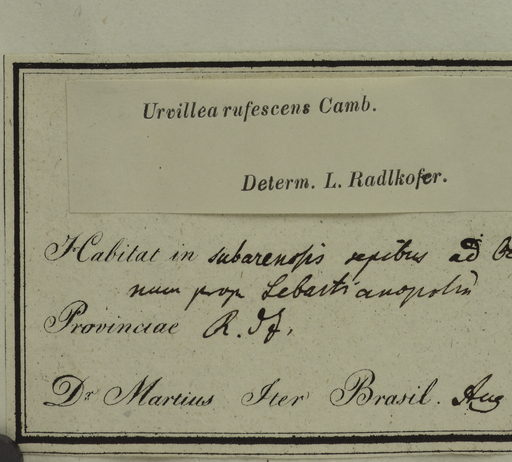 Urvillea rufescens Camb.
Determ. L. Radlkofer.
Habitat in subarenosis sepibus ad
num prop Sebastianopolin
Provinciae R. J.
Dr Martius Iter Brasil. Aug